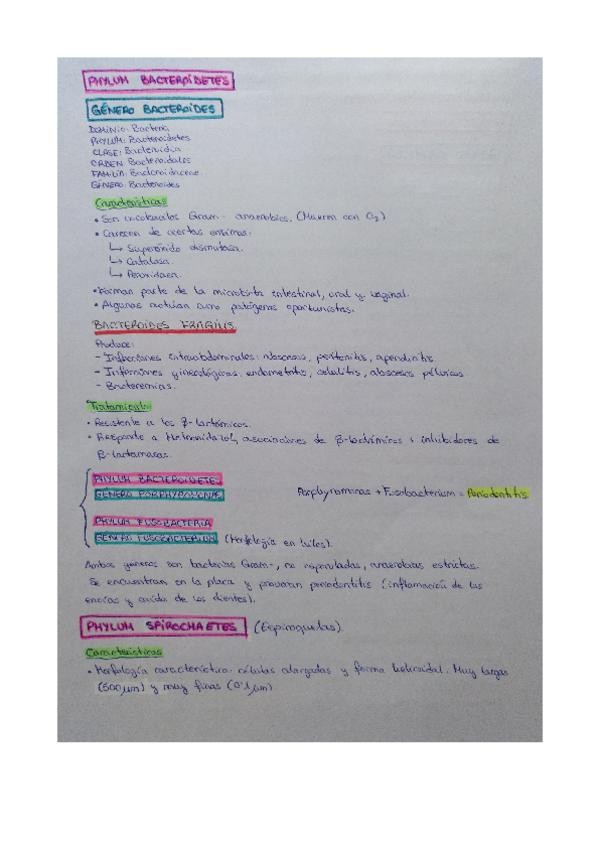 PHYLUM BACTEROÏDETES
GÉNERO BACTEROÏDES
DOMINIO: Bacteria
PHYLUM: Bacteroidetes
CLASE: Bacteroidia
ORDEN: Bacteroidales
FAMILIA: Bacteroidaceae
GÉNERO: Bacteroides
Características
• Son cocobacilos Gram- anaerobios. (Mueren con O2)
• Carecen de ciertas enzimas:
↳ Superóxido dismutasa.
↳ Catalasa.
↳ Peroxidasa.
• Forman parte de la microbiota intestinal, oral y vaginal.
• Algunas actúan como patógenos oportunistas.
BACTEROIDES FRAGILIS
Produce:
- Infecciones intraabdominales: abscesos, peritonitis, apendicitis.
- Infecciones ginecológicas: endometritis, celulitis, abscesos pélvicos
- Bacteremias.
Tratamiento
• Resistente a los β-lactámicos.
• Responde a Metronidazol, asociaciones de β-lactámicos + inhibidores de
β-lactamasas.
PHYLUM BACTEROIDETES
GÉNERO PORPHYROMONAS
Porphyromonas + Fusobacterium = Periodontitis
PHYLUM FUSOBACTERIA
GÉNERO FUSOBACTERIUM (Morfología en husos).
Ambos géneros son bacterias Gram-, no esporuladas, anaerobias estrictas.
Se encuentran en la placa y provocan periodontitis (inflamación de las
encías y caída de los dientes).
PHYLUM SPIROCHAETES (Espiroquetas)
Características
• Morfología característica: células alargadas y forma helicoidal. Muy largas
(500µm) y muy finas (0'1µm)